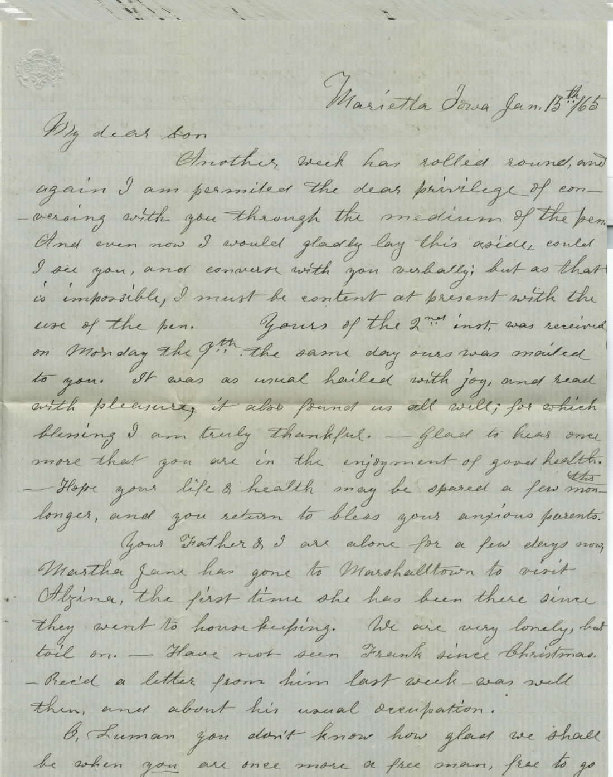 Marietta Iowa Jan. 15th/65
My dear Son
Another week has rolled round, and
again I am permited the dear privilege of con-
-versing with you through the medium of the pen
And even now I would gladly lay this aside, could
I see you, and converse with you verbally; but as that
is impossible, I must be content at present with the
use of the pen. Yours of the 2nd inst. was received
on Monday the 9th. the same day ours was mailed
to you. It was as usual hailed with joy, and read
with pleasure, it also found us all well; for which
blessing I am truly thankful. — Glad to hear once
more that you are in the enjoyment of good health.
— Hope your life & health may be spared a few mon ths
longer, and you return to bless your anxious parents.
Your Father & I are alone for a few days now,
Martha Jane has gone to Marshalltown to visit
Alzina, the first time she has been there since
they went to housekeeping. We are very lonely, but
toil on. — Have not seen Frank since Christmas.
— Rec'd a letter from him last week — was well
then, and about his usual occupation.
O, Luman you don't know how glad we shall
be when you are once more a free man, free to go